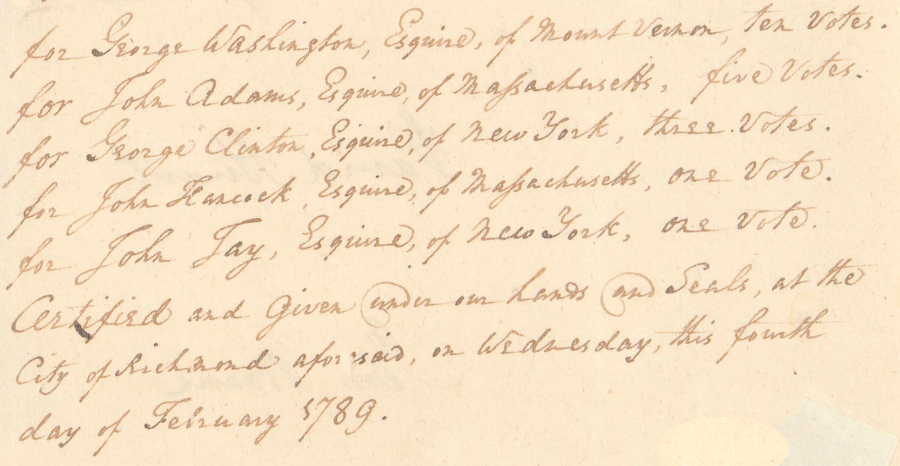 for George Washington, Esquire, of Mount Vernon, ten Votes.
for John Adams, Esquire, of Massachusetts, five Votes.
for George Clinton, Esquire, of New York, three Votes.
for John Hancock, Esquire, of Massachusetts, one Vote.
for John Jay, Esquire, of New York, one Vote.
Certified and Given under our hands and Seals, at the
City of Richmond aforesaid, on Wednesday, this fourth
day of February 1789.